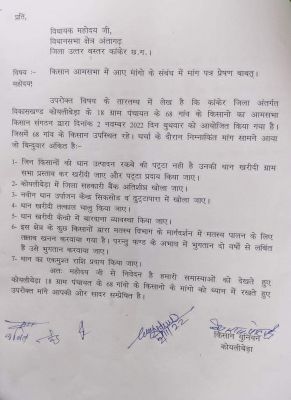 प्रति,
विधायक महोदय जी,
विधानसभा क्षेत्र अंतागढ़
जिला उत्तर बस्तर कांकेर छ.ग.।
विषय :- किसान आमसभा में आए मांगो के संबंध में मांग पत्र प्रेषण बाबत्।
महोदय!
उपरोक्त विषय के तारतम्य में लेख है कि कांकेर जिला अंतर्गत
विकासखण्ड कोयलीबेड़ा के 18 ग्राम पंचायत के 68 गांव के किसानो का आमसभा
किसान संगठन द्वारा दिनांक 2 नवम्बर 2022 दिन बुधवार को आयोजित किया गया है।
जिसमें 68 गांव के किसान उपस्थित रहे। चर्चा के दौरान निम्नांकित मांग सामने आया
जो बिन्दुवार अंकित है:-
1- जिन किसानों की धान उत्पादन रकबे की पट्टा नही है उनकी धान खरीदी ग्राम
सभा प्रस्ताव कर खरीदी जाए और पट्टा प्रदाय किया जाए।
2- कोयलीबेड़ा में जिला सहकारी बैंक अतिशीघ्र खोला जाए।
3- नवीन धान उपार्जन केन्द्र सिकसोड़ व में खोला जाए।
4- धान खरीदी तत्काल चालु किया जाए।
5- धान खरीदी केन्द्रो में बारदाना व्यवस्था किया जाए।
6- इस क्षेत्र के कुछ किसानों द्वारा मत्स्य विभाग के मार्गदर्शन में मतस्य पालन के लिए
तालाब खनन करवाया गया है। परन्तु फण्ड के अभाव में भुगतान दो वर्षो से लंबित
है उसे भुगतान करवाया जाए।
7- धान का एकमुश्त राशि प्रदाय किया जाए।
अतः महोदय जी से निवेदन है हमारी समास्याओं को देखते हुए
कोयलीबेड़ा 18 ग्राम पंचायत के 68 गांवो के किसानो के मांगो को ध्यान में रखते हुए
उपरोक्त मांगे आपकी ओर सादर सम्प्रेषित है।
2/11/22
किसान युनियन
कोयलीबेड़ा